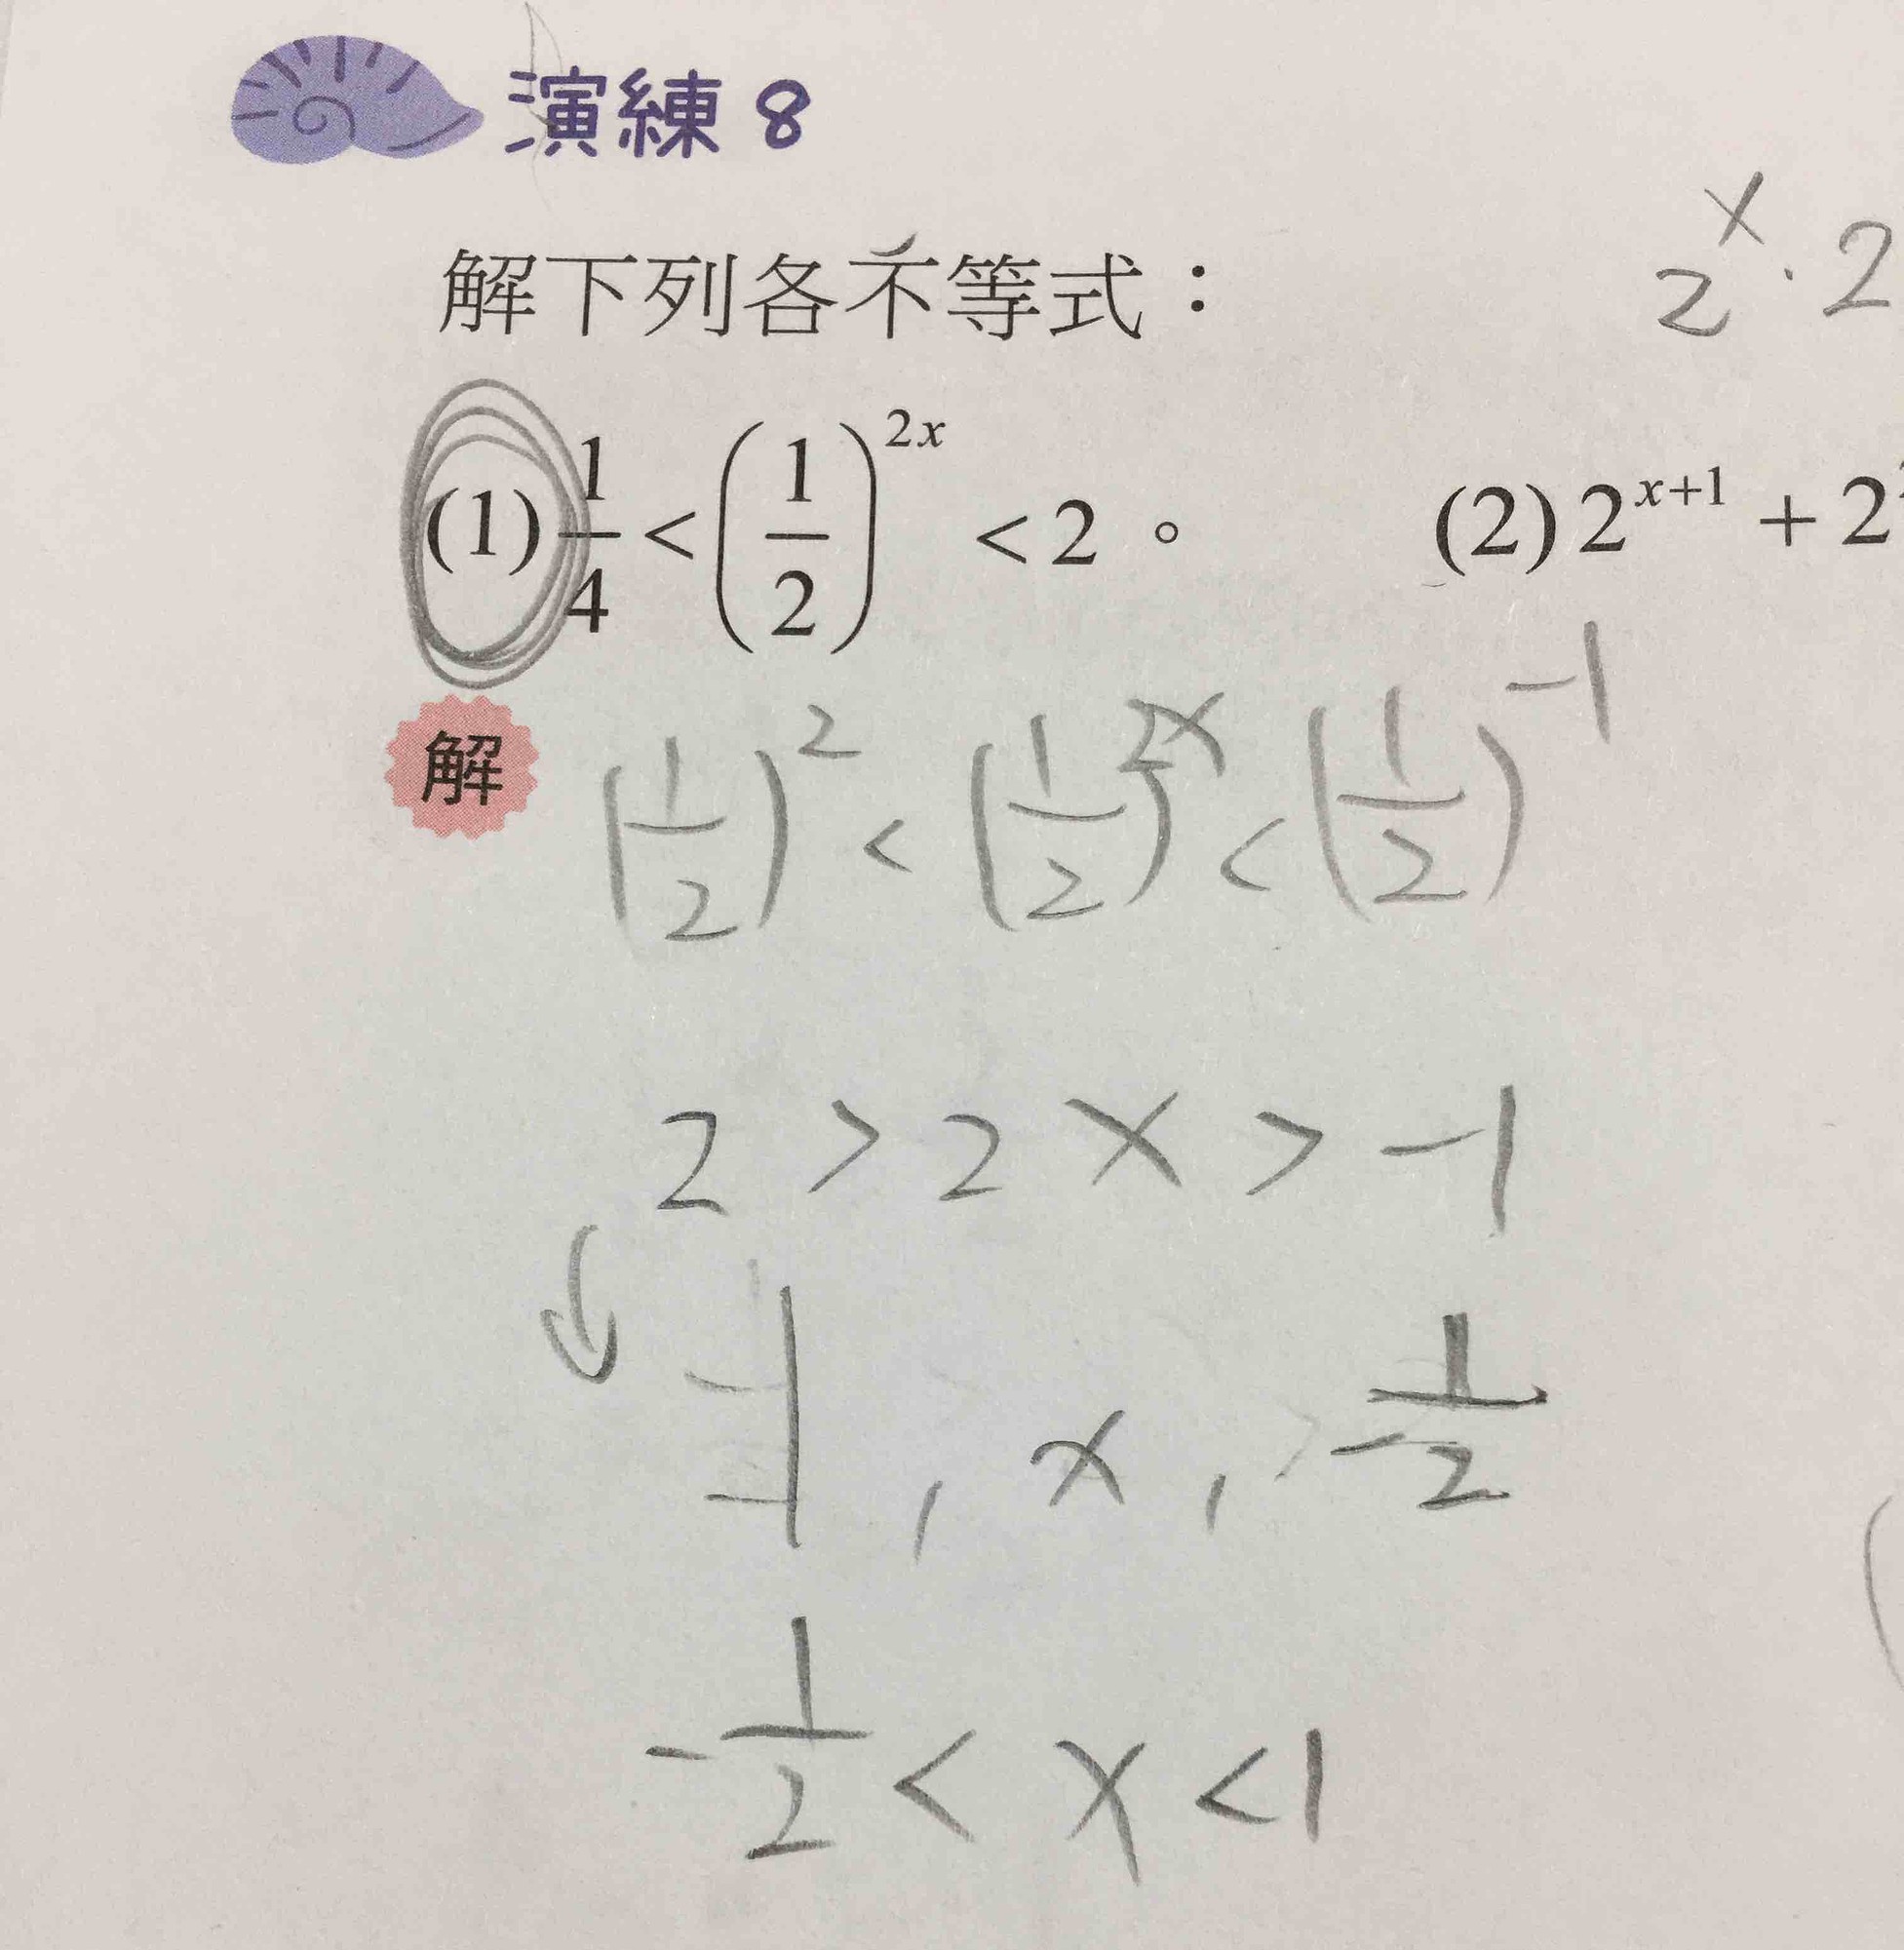 演練 8
解下列各不等式：
2^x · 2
(1) 1/4 < (1/2)^{2x} < 2 。
(2) 2^{x+1} + 2
解
(1/2)^2 < (1/2)^{2x} < (1/2)^{-1}
2 > 2x > -1
1 , x , -1/2
-1/2 < x < 1